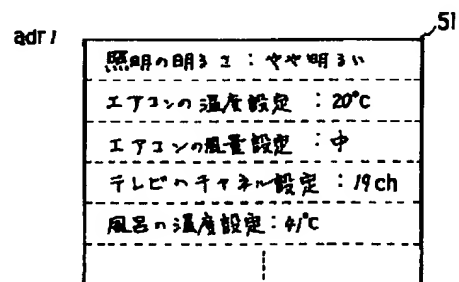 adr1
51
照明の明るさ：やや明るい
エアコンの温度設定：20°C
エアコンの風量設定：中
テレビのチャネル設定：19ch
風呂の温度設定：41°C